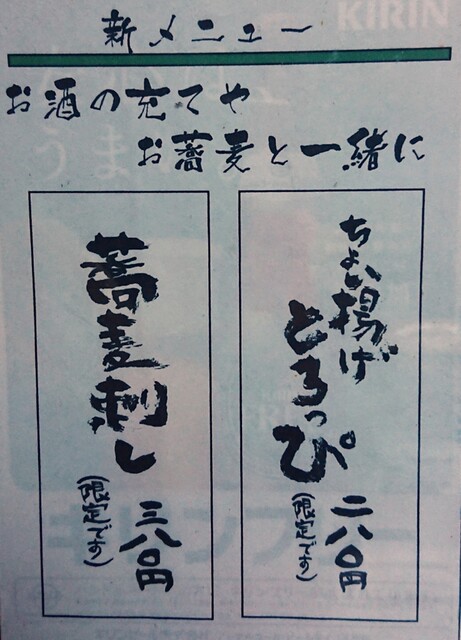 新メニュー
お酒の充てや
お蕎麦と一緒に
ちょい揚げ
とろっぴ
二八〇円
(限定です)
蕎麦刺し
三八〇円
(限定です)
KIRIN